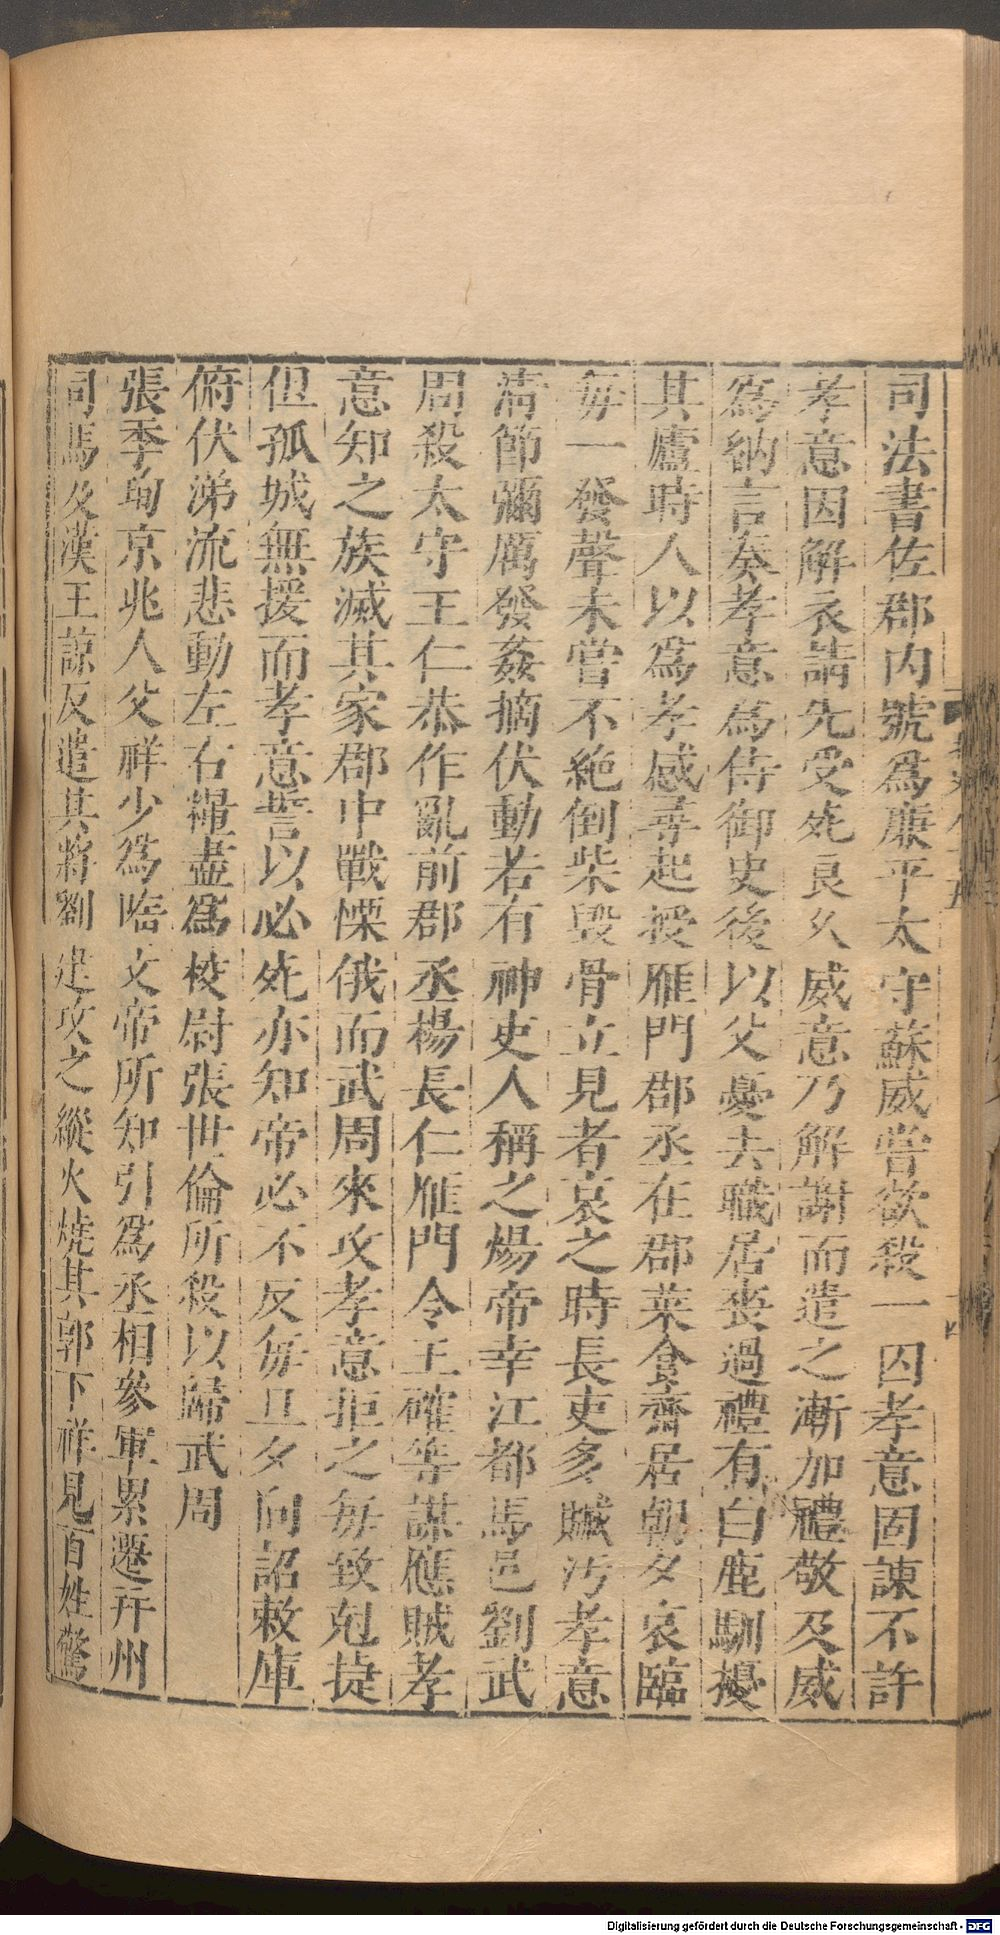 司法書佐郡內號爲廉平太守蘇威嘗欲殺一囚孝意固諫不許
孝意因解衣請先受死良久威意乃解謝而遣之漸加禮敬及威
爲納言奏孝意爲侍御史後以父憂去職居喪過禮有白鹿馴擾
其廬時人以爲孝感尋起授雁門郡丞在郡菜食齋居朝夕哀臨
每一發聲未嘗不絶倒柴毀骨立見者哀之時長吏多贓污孝意
清節彌厲發姦摘伏動若有神吏人稱之煬帝幸江都馬邑劉武
周殺太守王仁恭作亂前郡丞楊長仁雁門令王確等謀應賊孝
意知之族滅其家郡中戰慄俄而武周來攻孝意拒之每致剋捷
但孤城無援而孝意誓以必死亦知帝必不反每旦夕向詔敕庫
俯伏涕流悲動左右糧盡爲校尉張世倫所殺以歸武周
張季珣京兆人父祥少爲隋文帝所知引爲丞相參軍累遷并州
司馬及漢王諒反遣其將劉建攻之縱火燒其郭下祥見百姓驚
Digitalisierung gefördert durch die Deutsche Forschungsgemeinschaft - DFG